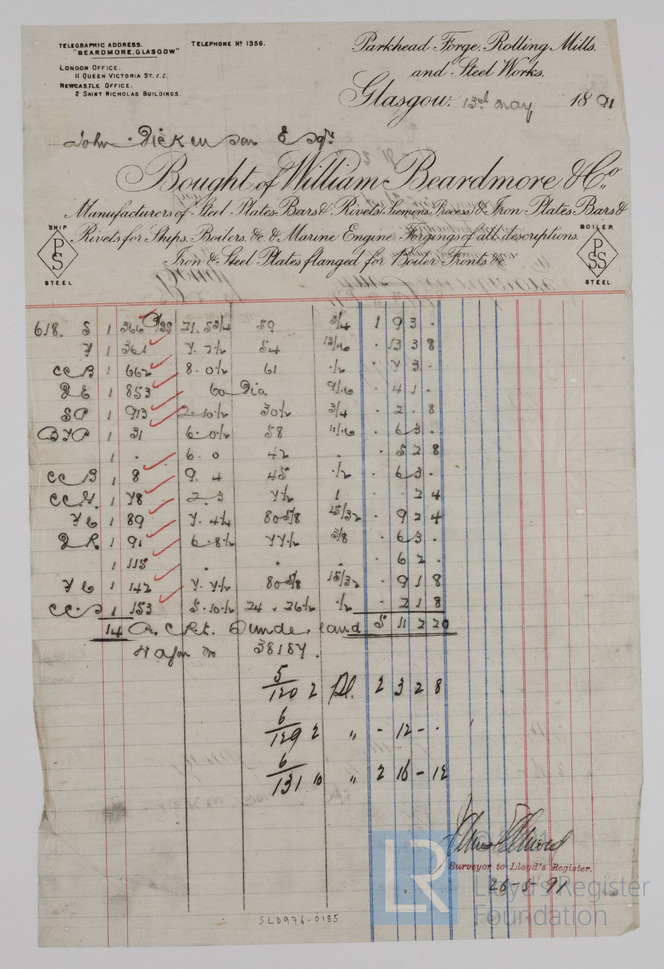 TELEGRAPHIC ADDRESS. TELEPHONE Nº 1356.
"BEARDMORE, GLASGOW"
LONDON OFFICE.
11 QUEEN VICTORIA ST. E.C.
NEWCASTLE OFFICE.
2 SAINT NICHOLAS BUILDINGS.
Parkhead Forge, Rolling Mills,
and Steel Works,
Glasgow, 13th May 1891
John Dickenson Esqre
Bought of William Beardmore & Co.,
Manufacturers of Steel Plates Bars & Rivets Siemens Process & Iron Plates Bars &
Rivets for Ships, Boilers, &c. & Marine Engine Forgings of all descriptions,
Iron & Steel Plates flanged for Boiler Fronts &c
SHIP
PSS
STEEL
BOILER
PSS
STEEL
618. S 1 366 21. 5 3/4 59 3/4 1 9 3 .
7 1 361 7. 7½ 54 13/16 . 13 3 8
CCB 1 662 8. 0½ 61 ½ . 7 3 .
DE 1 853 60 Dia 9/16 . 4 1 .
SP 1 913 2. 10½ 30½ 3/4 . 2 . 8
1 31 6. 0½ 58 11/16 . 6 3 .
1 . 6. 0 42 . . 5 2 8
CCB 1 8 9. 4 45 ½ . 6 3 .
CCG 1 78 2. 3 7½ 1 . . 2 4
7C 1 89 7. 4¼ 80 5/8 15/32 . 9 2 4
DR 1 91 6. 8½ 77½ 3/8 . 6 3 .
1 115 . . . . 6 2 .
7C 1 142 7. 7½ 80 5/8 15/32 . 9 1 8
1 153 5. 10½ 24 . 26½ ½ . 2 1 8
14 Sunderland 5 11 2 20
Wagon No 38187.
5/120 2 Pl. 2 3 2 8
6/129 2 " - 12 - .
6/131 10 " 2 16 - 12
Surveyor to Lloyd's Register.
26-5-91
LR
Lloyd's Register
Foundation
SLD976-0185